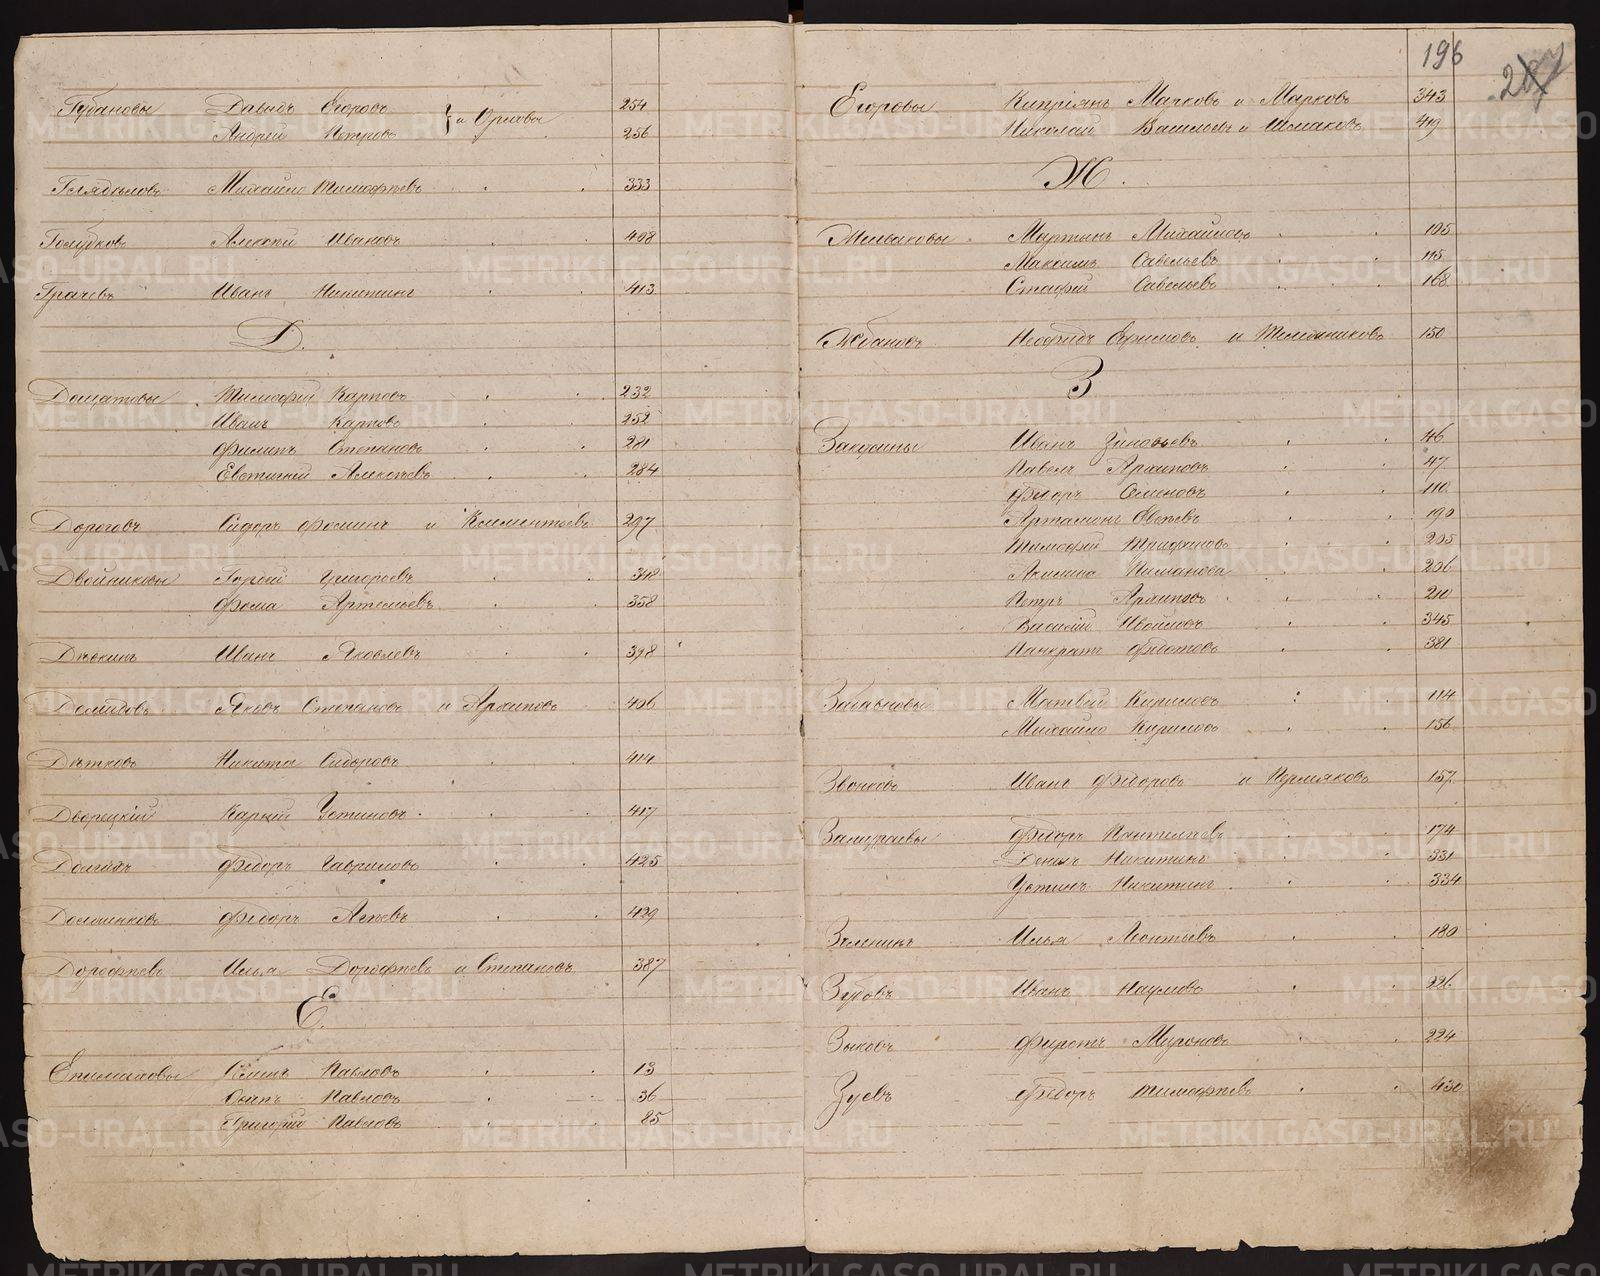 Губановы Давыдъ Егоровъ } и Орловы 254
Андрей Петровъ 256
Глядѣловъ Михайло Тимофѣевъ 333
Голубковъ Алексѣй Ивановъ 408
Грачевъ Иванъ Никитинъ 413
Д.
Долматовы Тимофей Карповъ 232
Иванъ Карповъ 252
Филипъ Степановъ 281
Евстигней Алексѣевъ 284
Дороговъ Сидоръ Фоминъ и Климентьевъ 297
Двойниковы Гордей Григорьевъ 348
Фома Артемьевъ 358
Иванъ Яковлевъ 398
Демидовъ Яковъ Степановъ и Архиповъ 406
Дѣтковъ Никита Сидоровъ 414
Дворецкій Карпъ Устиновъ 417
Долгихъ Федоръ Гавриловъ 425
Федоръ 429
Дорофѣевъ Илья Дорофѣевъ и Степановъ 387
Е.
Епимаховы Семенъ Павловъ 13
Осипъ Павловъ 36
Григорій Павловъ 85
196
207
Егоровы Кипріянъ Марковъ и Марковъ 343
Николай Васильевъ и Шмаковъ 419
Ж.
Желваковы Мартинъ Михайловъ 105
Максимъ Савельевъ 115
Стафей Савельевъ 168
Жбановъ Неофидъ Ефимовъ и 150
З
Закусины Иванъ Зиновьевъ 46
Павелъ Архиповъ 47
Федоръ Семеновъ 110
Артамонъ 190
Тимофей Трифановъ 205
Акилина 206
Петръ Архиповъ 210
Василій 345
Панкратъ Федотовъ 381
Матвей Кириловъ 114
Михайло Кириловъ 156
Звонковъ Иванъ Федоровъ и Пермяковъ 157
Замураевы Федоръ Пантелѣевъ 174
Денисъ Никитинъ 331
Устинъ Никитинъ 334
Зеленинъ Илья Леонтьевъ 180
Зубовъ Иванъ Наумовъ 226
Зыковъ Мироновъ 224
Зуевъ Федоръ Тимофѣевъ 430